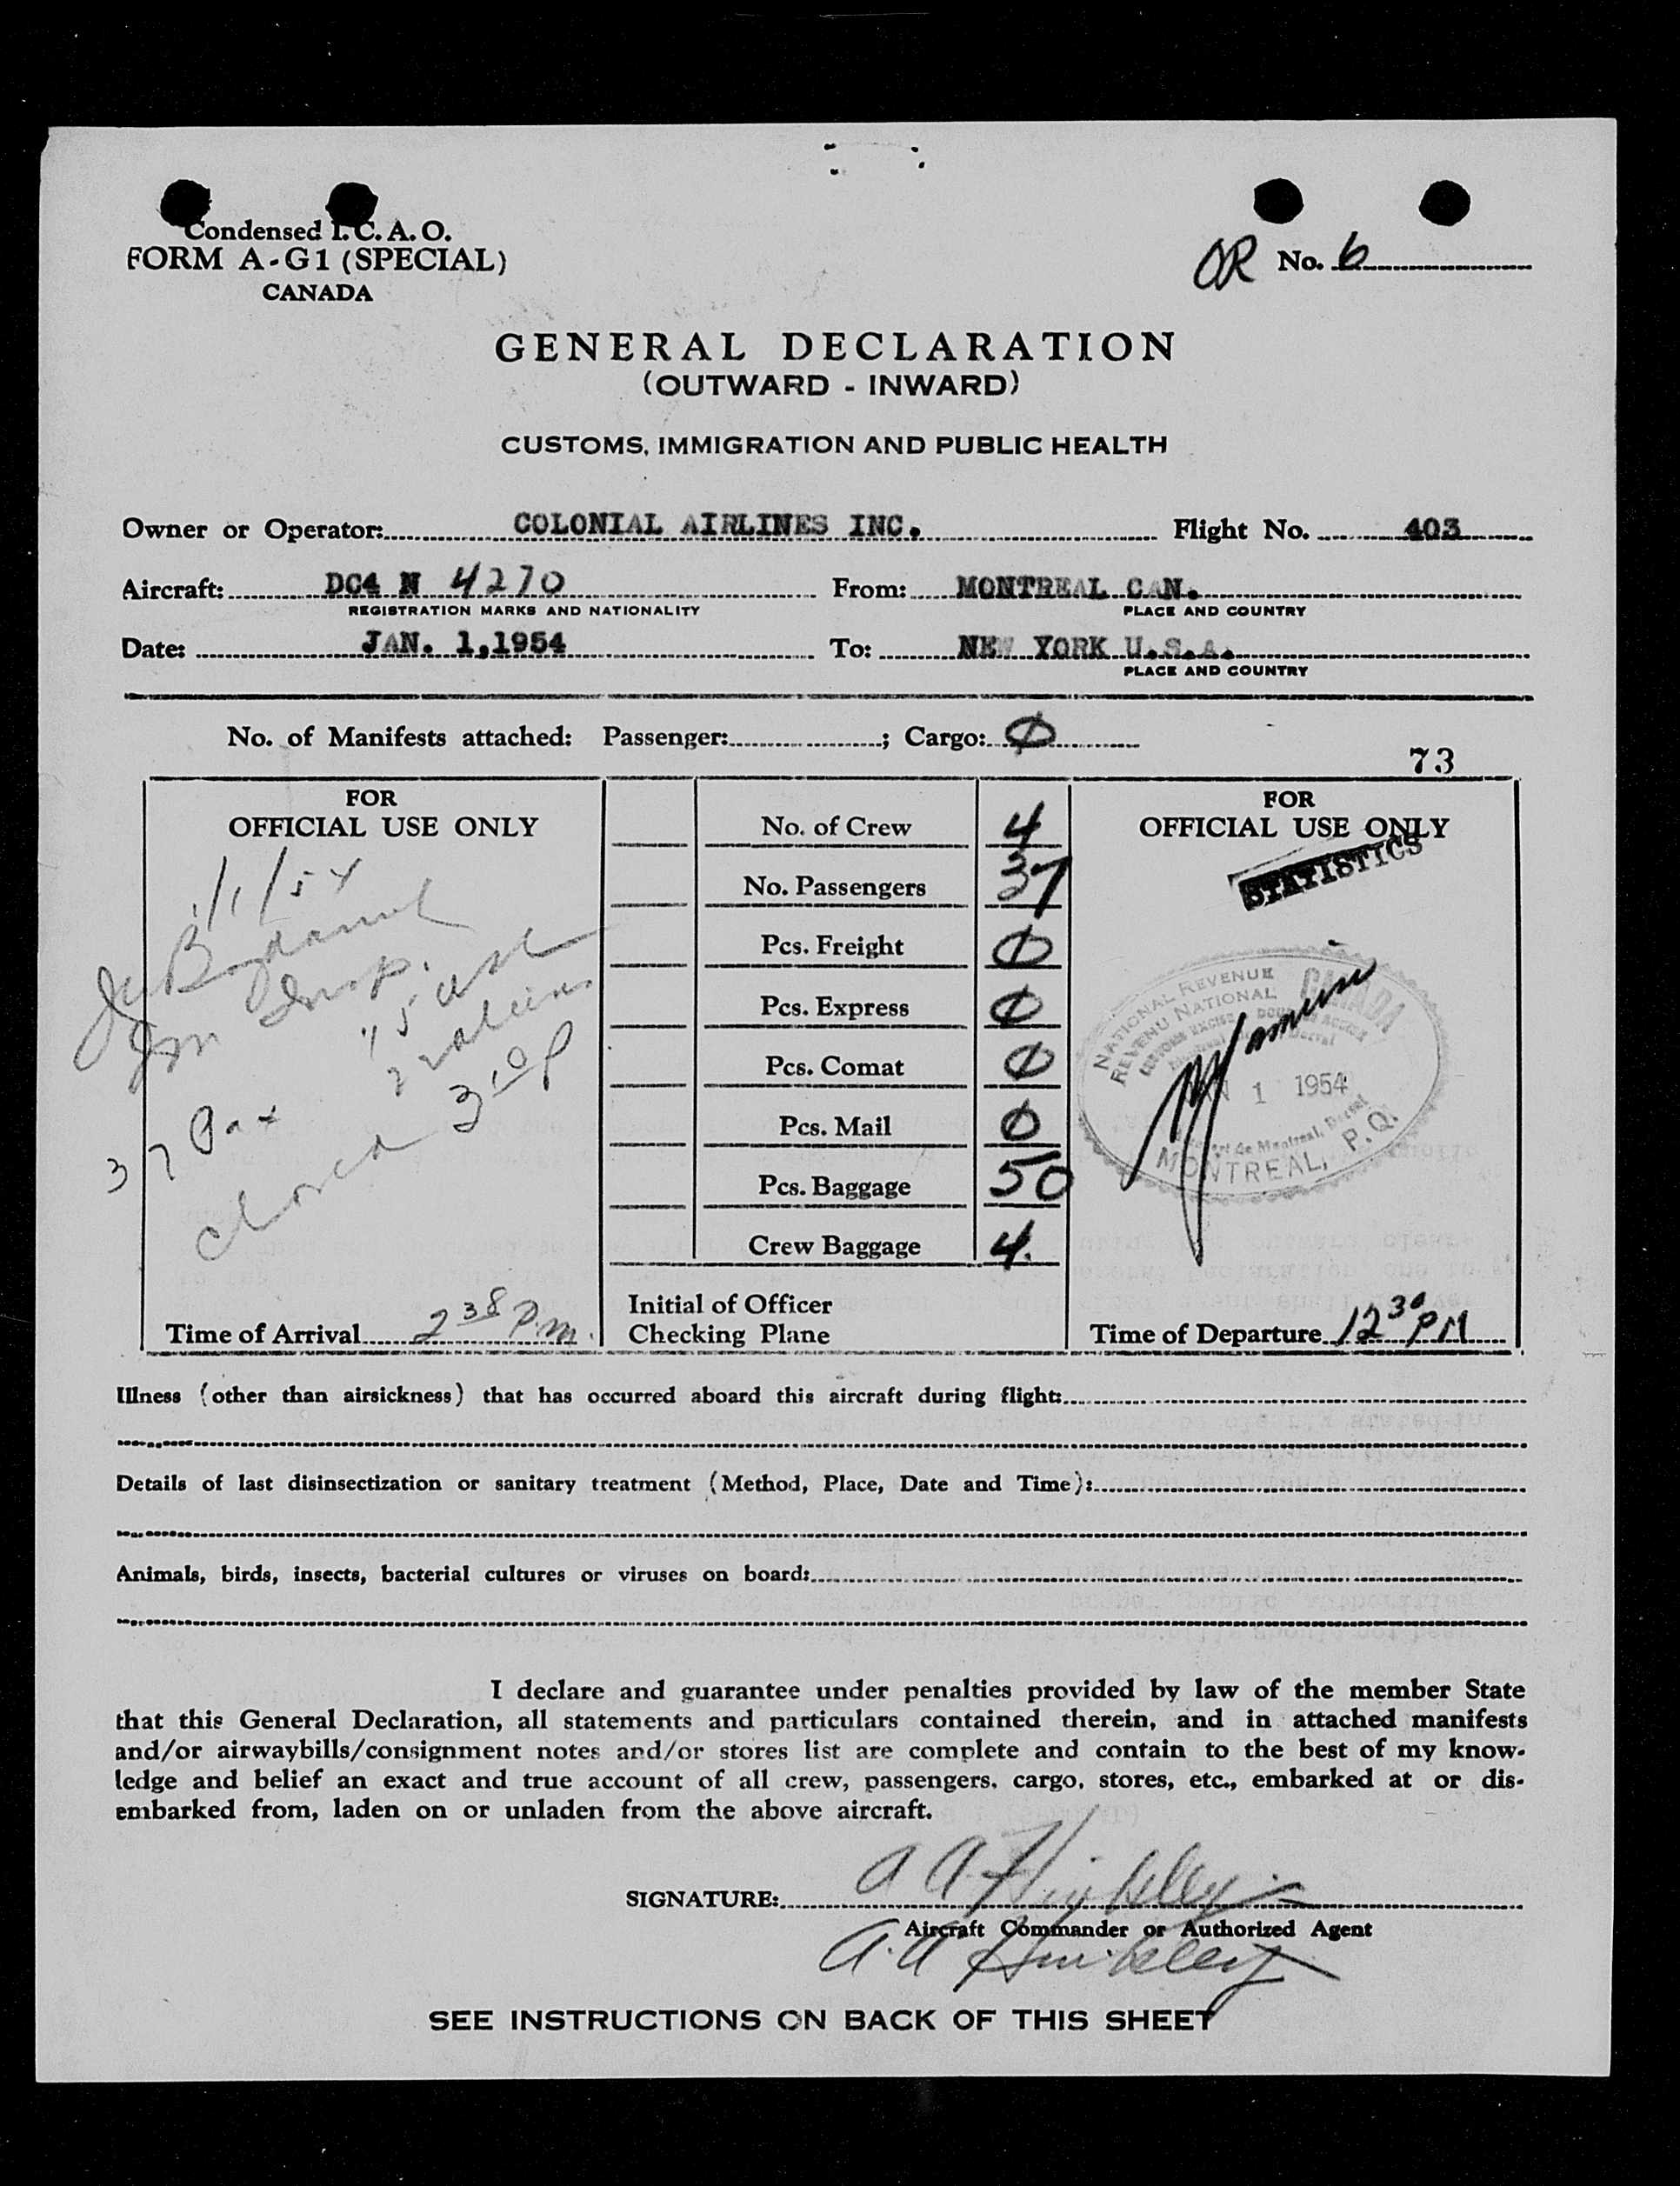 Condensed I.C.A.O.
FORM A-G1 (SPECIAL)
CANADA
OR No. 6
GENERAL DECLARATION
(OUTWARD - INWARD)
CUSTOMS, IMMIGRATION AND PUBLIC HEALTH
Owner or Operator: COLONIAL AIRLINES INC. Flight No. 403
Aircraft: DC4 N 4270 From: MONTREAL CAN.
REGISTRATION MARKS AND NATIONALITY PLACE AND COUNTRY
Date: JAN. 1,1954 To: NEW YORK U.S.A.
PLACE AND COUNTRY
No. of Manifests attached: Passenger: ; Cargo: 0
73
FOR
OFFICIAL USE ONLY
1/1/54
Insp.
37 Pax
closed 3 10 p
Time of Arrival 2 38 P.m.
No. of Crew 4
No. Passengers 37
Pcs. Freight 0
Pcs. Express 0
Pcs. Comat 0
Pcs. Mail 0
Pcs. Baggage 50
Crew Baggage 4.
Initial of Officer
Checking Plane
FOR
OFFICIAL USE ONLY
STATISTICS
NATIONAL REVENUE
REVENU NATIONAL
CANADA
JAN 1 1954
MONTREAL, P.Q.
Time of Departure 12 30 PM
Illness (other than airsickness) that has occurred aboard this aircraft during flight:
Details of last disinsectization or sanitary treatment (Method, Place, Date and Time):
Animals, birds, insects, bacterial cultures or viruses on board:
I declare and guarantee under penalties provided by law of the member State
that this General Declaration, all statements and particulars contained therein, and in attached manifests
and/or airwaybills/consignment notes and/or stores list are complete and contain to the best of my know-
ledge and belief an exact and true account of all crew, passengers, cargo, stores, etc., embarked at or dis-
embarked from, laden on or unladen from the above aircraft.
SIGNATURE: A A
Aircraft Commander or Authorized Agent
A. A
SEE INSTRUCTIONS ON BACK OF THIS SHEET